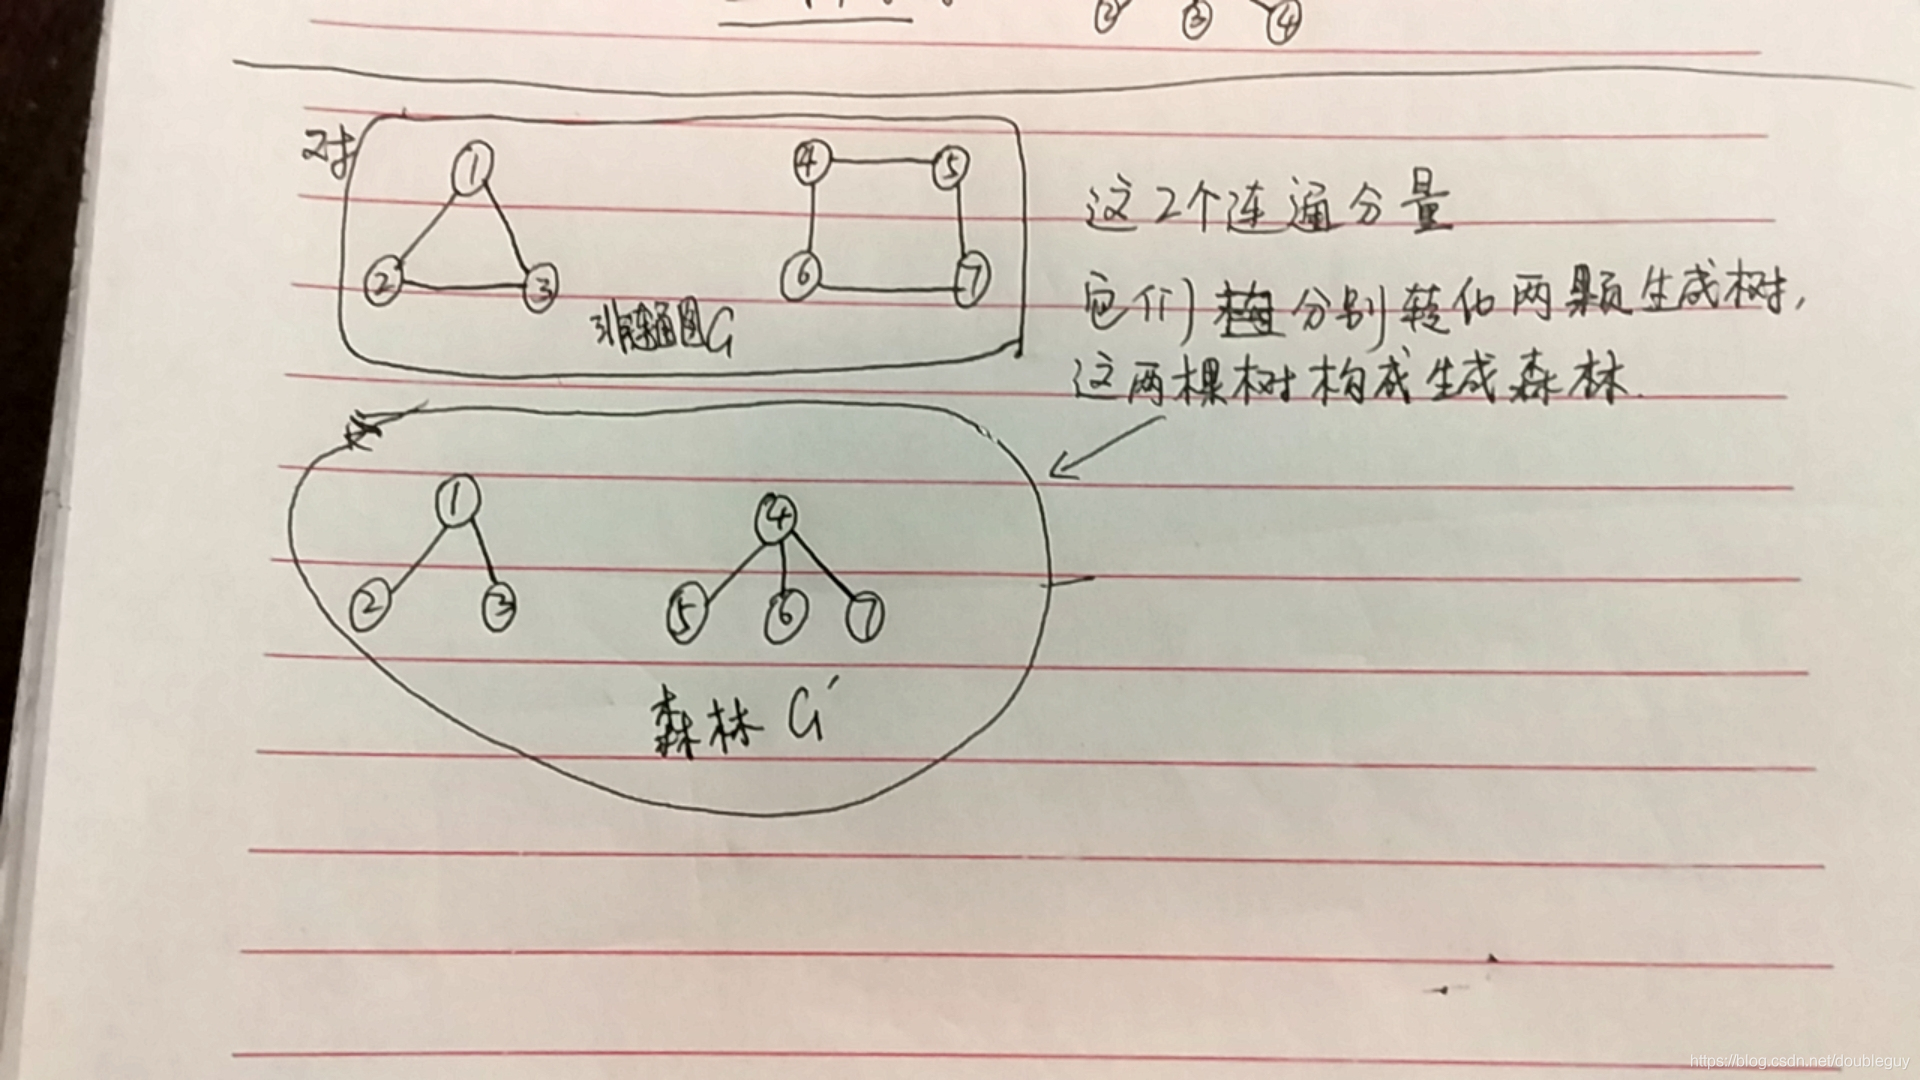 ② ③ ④
对
① ④ ⑤
② ③ ⑥ ⑦
非连通图G
这2个连通分量
它们 分别转化两颗生成树,
这两棵树构成生成森林.
① ④
② ③ ⑤ ⑥ ⑦
森林 G'
https://blog.csdn.net/doubleguy